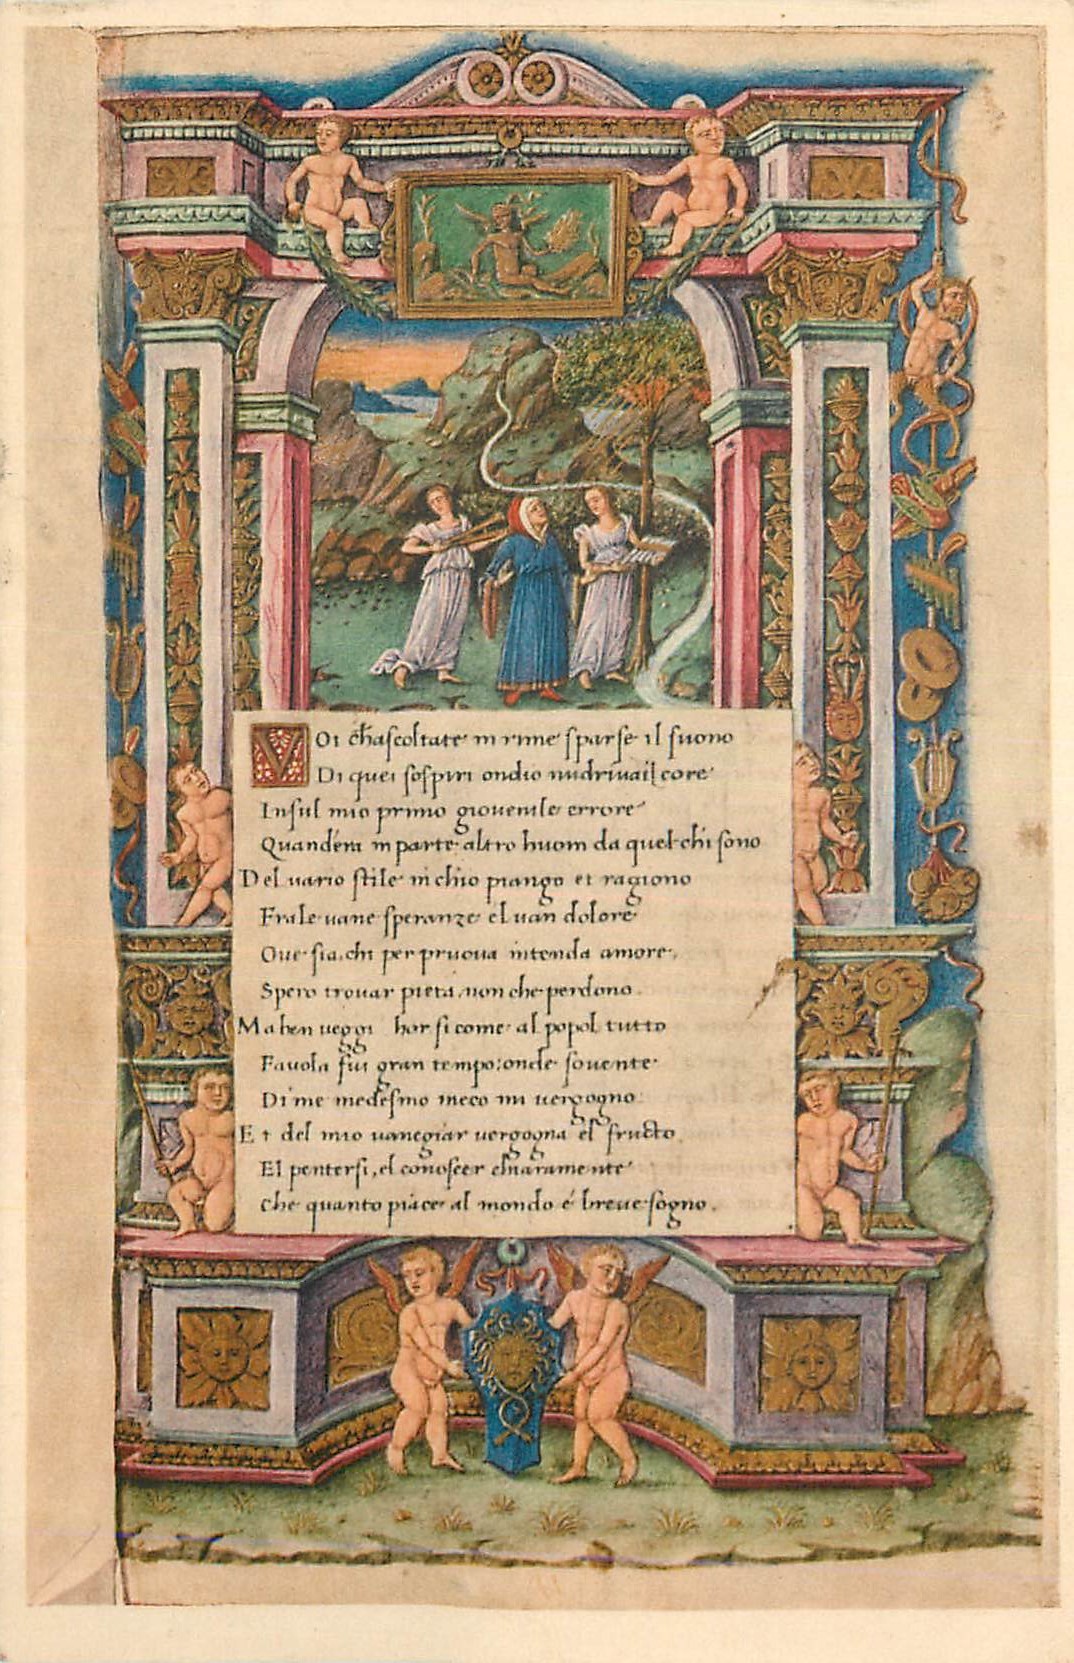 VOi ch'ascoltate in rime sparse il suono
Di quei sospiri ondio nudrivail core
Insul mio primo giouenile errore
Quandéra in parte altro huom da quel chi sono
Del uario stile in chio piango et ragiono
Frale uane speranze el uan dolore
Oue sia, chi per pruoua intenda amore,
Spero trouar pieta, non che perdono.
Ma ben ueggi hor si come al popol tutto
Fauola fui gran tempo: onde souente
Di me medesmo meco mi uergogno:
Et del mio uanegiar uergogna el fructo,
El pentersi, el conoscer chiaramente
Che quanto piace al mondo é breue sogno.